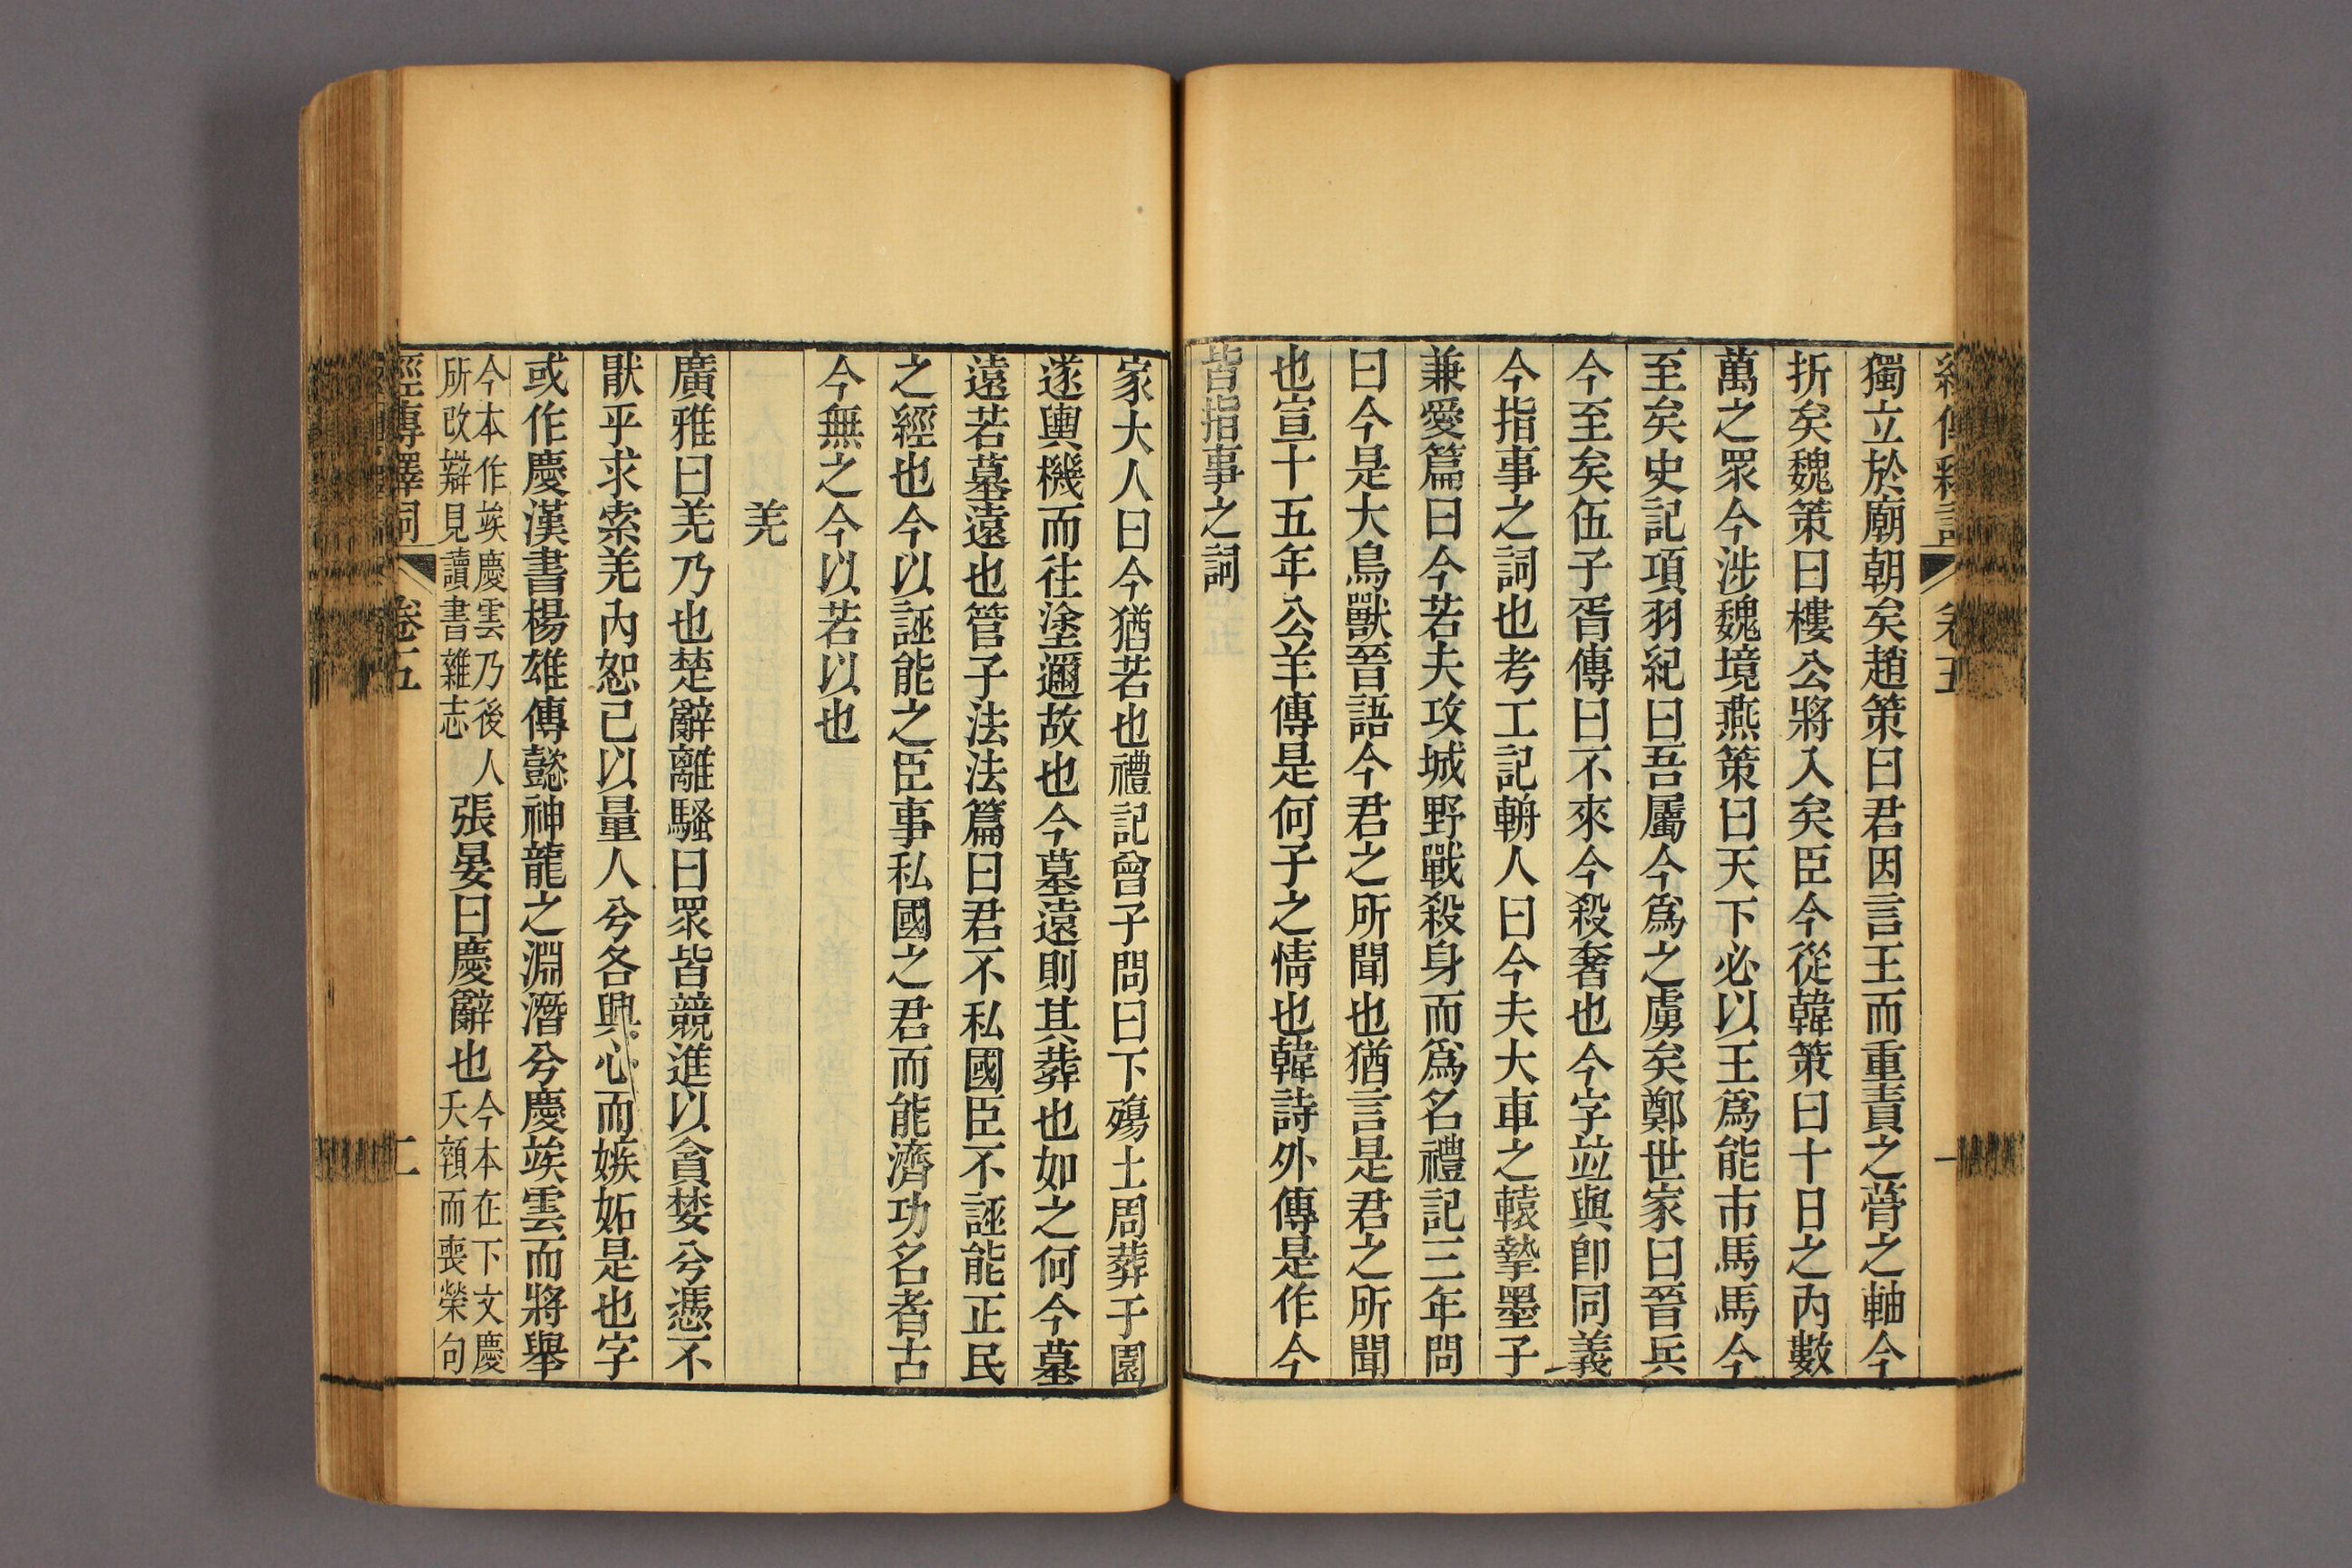 獨立於廟朝矣趙策曰君因言王而重責之葺之軸今
折矣魏策曰樓公將入矣臣今從韓策曰十日之內數
萬之眾今涉魏境燕策曰天下必以王爲能市馬馬今
至矣史記項羽紀曰吾屬今爲之虜矣鄭世家曰晉兵
今至矣伍子胥傳曰不來今殺奢也今字竝與卽同義
今指事之詞也考工記輈人曰今夫大車之轅摯墨子
兼愛篇曰今若夫攻城野戰殺身而爲名禮記三年問
曰今是大鳥獸晉語今君之所聞也猶言是君之所聞
也宣十五年公羊傳是何子之情也韓詩外傳是作今
皆指事之詞
家大人曰今猶若也禮記曾子問曰下殤土周葬于園
遂輿機而往塗邇故也今墓遠則其葬也如之何今墓
遠若墓遠也管子法法篇曰君不私國臣不誣能正民
之經也今以誣能之臣事私國之君而能濟功名者古
今無之今以若以也
羌
廣雅曰羌乃也楚辭離騷曰眾皆競進以貪婪兮憑不
猒乎求索羌內恕己以量人兮各興心而嫉妬是也字
或作慶漢書楊雄傳懿神龍之淵潛兮慶竢雲而將舉
今本作竢慶雲乃後人
所改辯見讀書雜志
張晏曰慶辭也
今本在下文慶
夭領而喪榮句
經傳釋詞
卷五
二